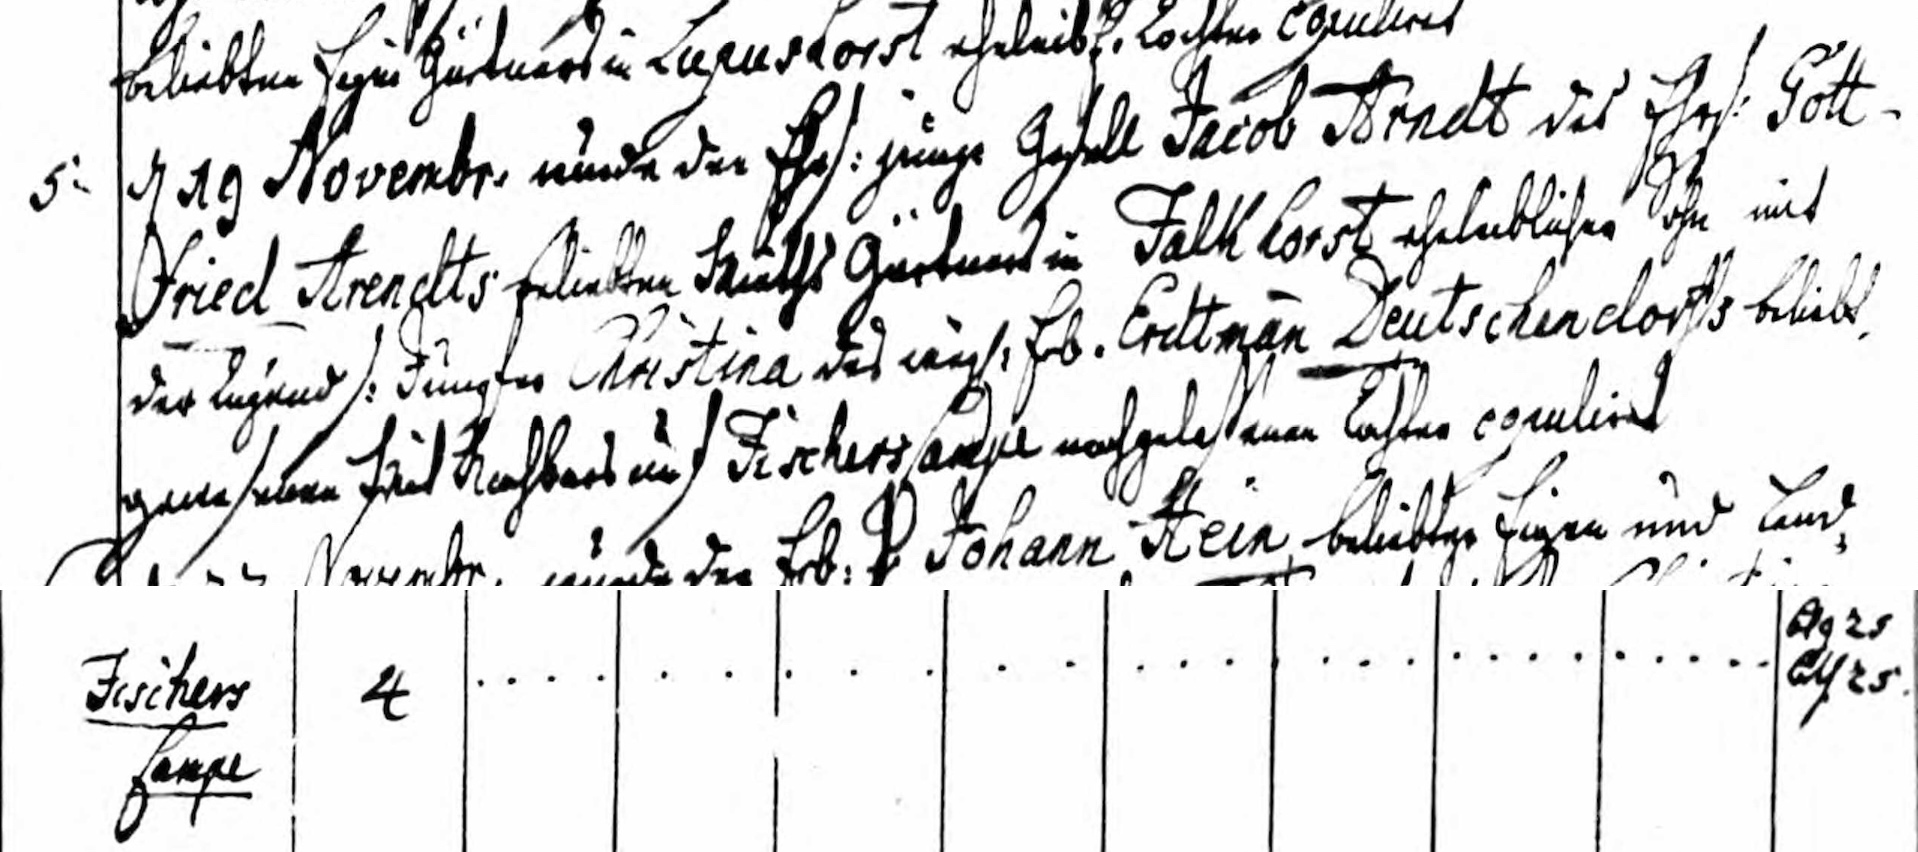 beliebten Eigen Gärtners in Lupushorst eheleibl. Tochter copuliret
5. d 19 Novembr. wurde der Ehrs: junge Gesell Jacob Arndt des Ehrs: Gott-
fried Arendts beliebten Mieths Gärtners in Falkhorst eheleiblicher Sohn mit
der Tugends: Jungfer Christina des weyl. Erb. Erdtman̄ Deutschendorffs beliebt
gewesenen Nachbars in Fischerscampe nachgelassenen Tochter copuliret
Novembr. wurde der Erb: Johann Stein beliebter Eigen und Land
Fischers
campe
4
25
25.